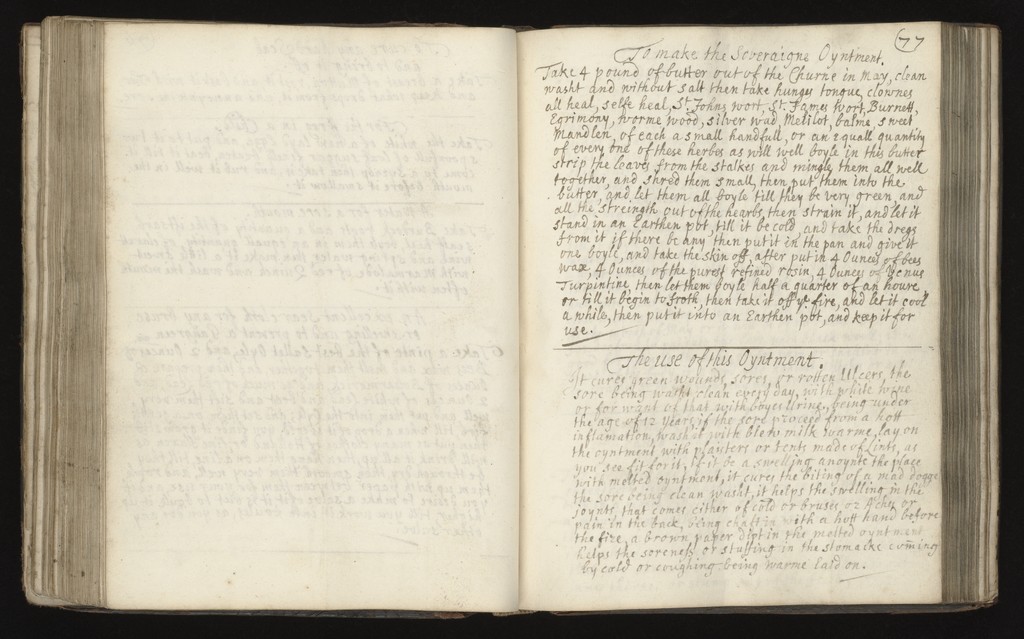 77
To make the Soveraigne Oyntment.
Take 4 pound of butter out of the Churne in May, clean
washt and without salt then take hunges tongue, clownes
all heal, selfe heal, St. Johns wort, St. James wort, Burnett,
Egrimony, worme wood, silver wad, Melilot, balme, sweet
Mandlen, of each a small handfull, or an equall quantity
of every one of these herbes as will well boyle in this butter
strip the leaves from the stalkes and mingle them all well
together, and shred them small, then put them into the
butter, and let them all boyle till they be very green, and
all the streingth out of the hearbs, then strain it, and let it
stand in an Earthen pot, till it be cold, and take the dregs
from it if there be any then put it in the pan and give it
one boyle, and take the skin off, after put in 4 Ounces of bees
wax, 4 Ounces of the purest refined rosin, 4 Ounces of Venus
Turpintine, then let them boyle half a quarter of an houre
or till it begin to froth, then take it off ye fire, and let it cool
a while, then put it into an Earthen pot, and keep it for
use.
The use of this Oyntment.
It cures green wounds, sores, or rotten Ulcers, the
sore being washt clean every day, with white wine
or for want of that with boyes Urine, being under
the age of 12 years, if the sore proceed from a hott
inflamation, wash it with blew milk warme, lay on
the oyntment with playters or tents made of lints, as
you see fit for it, if it be a swelling anoynte the place
with melted oyntment, it cures the biting of a mad dogge
the sore being clean washt, it helps the swelling in the
joynts, that comes either of cold or bruses or Achs, or
pain in the back, being chaft in with a hott hand before
the fire, a brown paper dipt in the melted oyntment
helps the soreness or stuffing in the stomake coming
by cold or coughing being warme laid on.